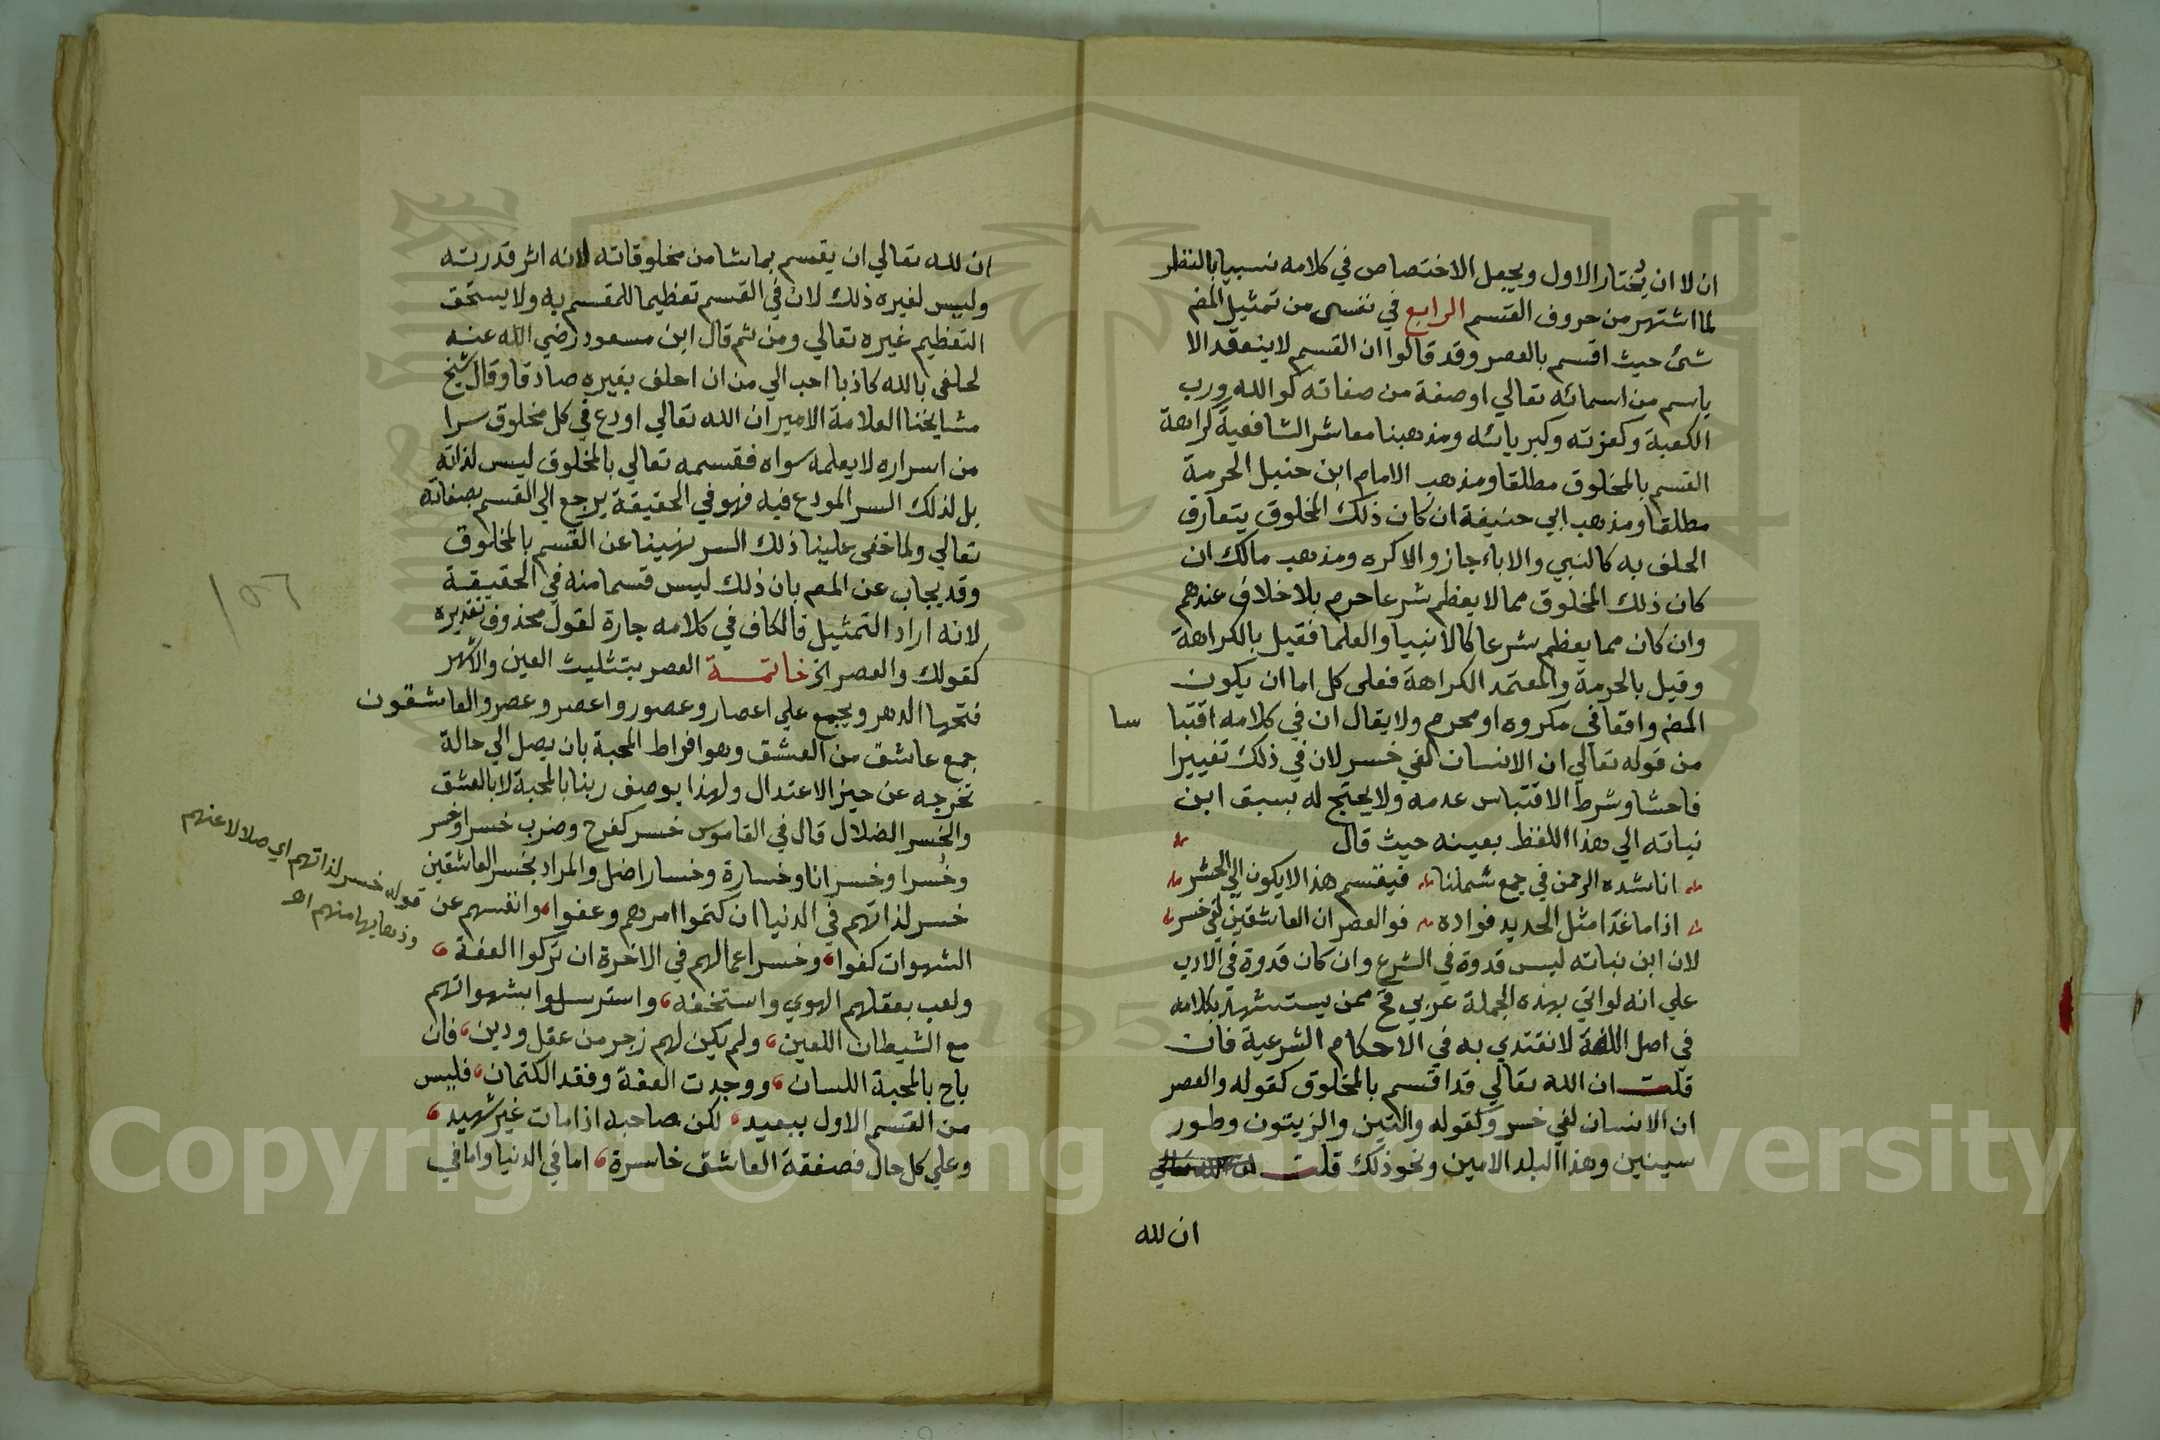 ان لا ان يختار الاول ويجعل الاختصاص في كلامه نسبيا بالنظر
لما اشتهر من حروف القسم الرابع في نفسي من تمثيل المصم
شئ حيث اقسم بالعصر وقد قالوا ان القسم لا ينعقد الا
باسم من اسمائه تعالي او صفة من صفاته كوالله ورب
الكعبة وكعزته وكبريائه ومذهبنا معاشر الشافعية كراهة
القسم بالمخلوق مطلقا ومذهب الامام ابن حنبل الحرمة
مطلقا ومذهب ابي حنيفة ان كان ذلك المخلوق يتعارف
الحلف به كالنبي والاباء جاز والا كره ومذهب مالك ان
كان ذلك المخلوق مما لا يعظم شرعا حرم بلا خلاف عندهم
وان كان مما يعظم شرعا كالانبيا والعلما فقيل بالكراهة
وقيل بالحرمة والمعتمد الكراهة فعلي كل اما ان يكون
المصم واقعا في مكروه او محرم ولا يقال ان في كلامه اقتبا سا
من قوله تعالي ان الانسان لفي خسر لان في ذلك تغييرا
فاحشا وشرط الاقتباس عدمه ولا يحتج له بسبق ابن
نباته الي هذا اللفظ بعينه حيث قال
اناشده الرحمن في جمع شملنا فيقسم هذا لا يكون الي الحشر
اذا ما غدا مثل الحديد فواده فوالعصر ان العاشقين لفي خسر
لان ابن نباته ليس قدوة في الشرع وان كان قدوة في الادب
علي انه لو اتي بهذه الجملة عربي قح ممن يستشهد بكلامه
في اصل اللغة لا نقتدي به في الاحكام الشرعية فان
قلت ان الله تعالي قد اقسم بالمخلوق كقوله والعصر
ان الانسان لفي خسر وكقوله والتين والزيتون وطور
سينين وهذا البلد الامين ونحو ذلك قلت
ان لله
ان لله تعالي ان يقسم بما شا من مخلوقاته لانه اثر قدرته
وليس لغيره ذلك لان في القسم تعظيما للمقسم به ولا يستحق
التعظيم غيره تعالي ومن ثم قال ابن مسعود رضي الله عنه
لحلفي بالله كاذبا احب الي من ان احلف بغيره صادقا وقال شيخ
مشايخنا العلامة الامير ان الله تعالي اودع في كل مخلوق سرا
من اسراره لا يعلمه سواه فقسمه تعالي بالمخلوق ليس لذاته
بل لذلك السر المودع فيه فهو في الحقيقة يرجع الي القسم بصفاته
تعالي ولما خفي علينا ذلك السر نهينا عن القسم بالمخلوق
وقد يجاب عن المصم بان ذلك ليس قسما منه في الحقيقة
لانه اراد التمثيل فالكاف في كلامه جارة لقول محذوف تقديره
كقولك والعصر الخ خاتمة العصر بتثليث العين والاشهر
فتحها الدهر ويجمع علي اعصار وعصور واعصر وعصر والعاشقون
جمع عاشق من العشق وهو افراط المحبة بان يصل الي حالة
تخرجه عن حيز الاعتدال ولهذا يوصف ربنا بالمحبة لا بالعشق
والخسر الضلال قال في القاموس خسر كفرح وضرب خسرا وخسر
وخُسرا وخسرانا وخسارة وخسارا ضل والمراد بخسر العاشقين
خسر لذاتهم في الدنيا ان كتموا امرهم وعفوا وانفسهم عن
الشهوات كفوا وخسر اعمالهم في الاخرة ان تركوا العفة
ولعب بعقلهم الهوي واستخفه واسترسلوا بشهواتهم
مع الشيطان اللعين ولم يكن لهم زجر من عقل ودين فان
باح بالمحبة اللسان ووجدت العفة وفقد الكتمان فليس
من القسم الاول ببعيد لكن صاحبه اذا مات غير شهيد
وعلي كل حال فصفقة العاشق خاسرة اما في الدنيا واما في
قوله خسر لذاتهم اي ضلالا عنهم
وذهابها منهم اهـ
١٥٦
1957
Copyright © King Saud University